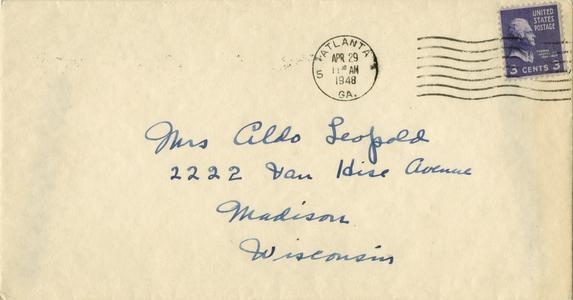 UNITED
STATES
POSTAGE
3 CENTS 3
ATLANTA
APR 29
AM
1948
GA.
Mrs Aldo Leopold
2222 Van Hise Avenue
Madison
Wisconsin